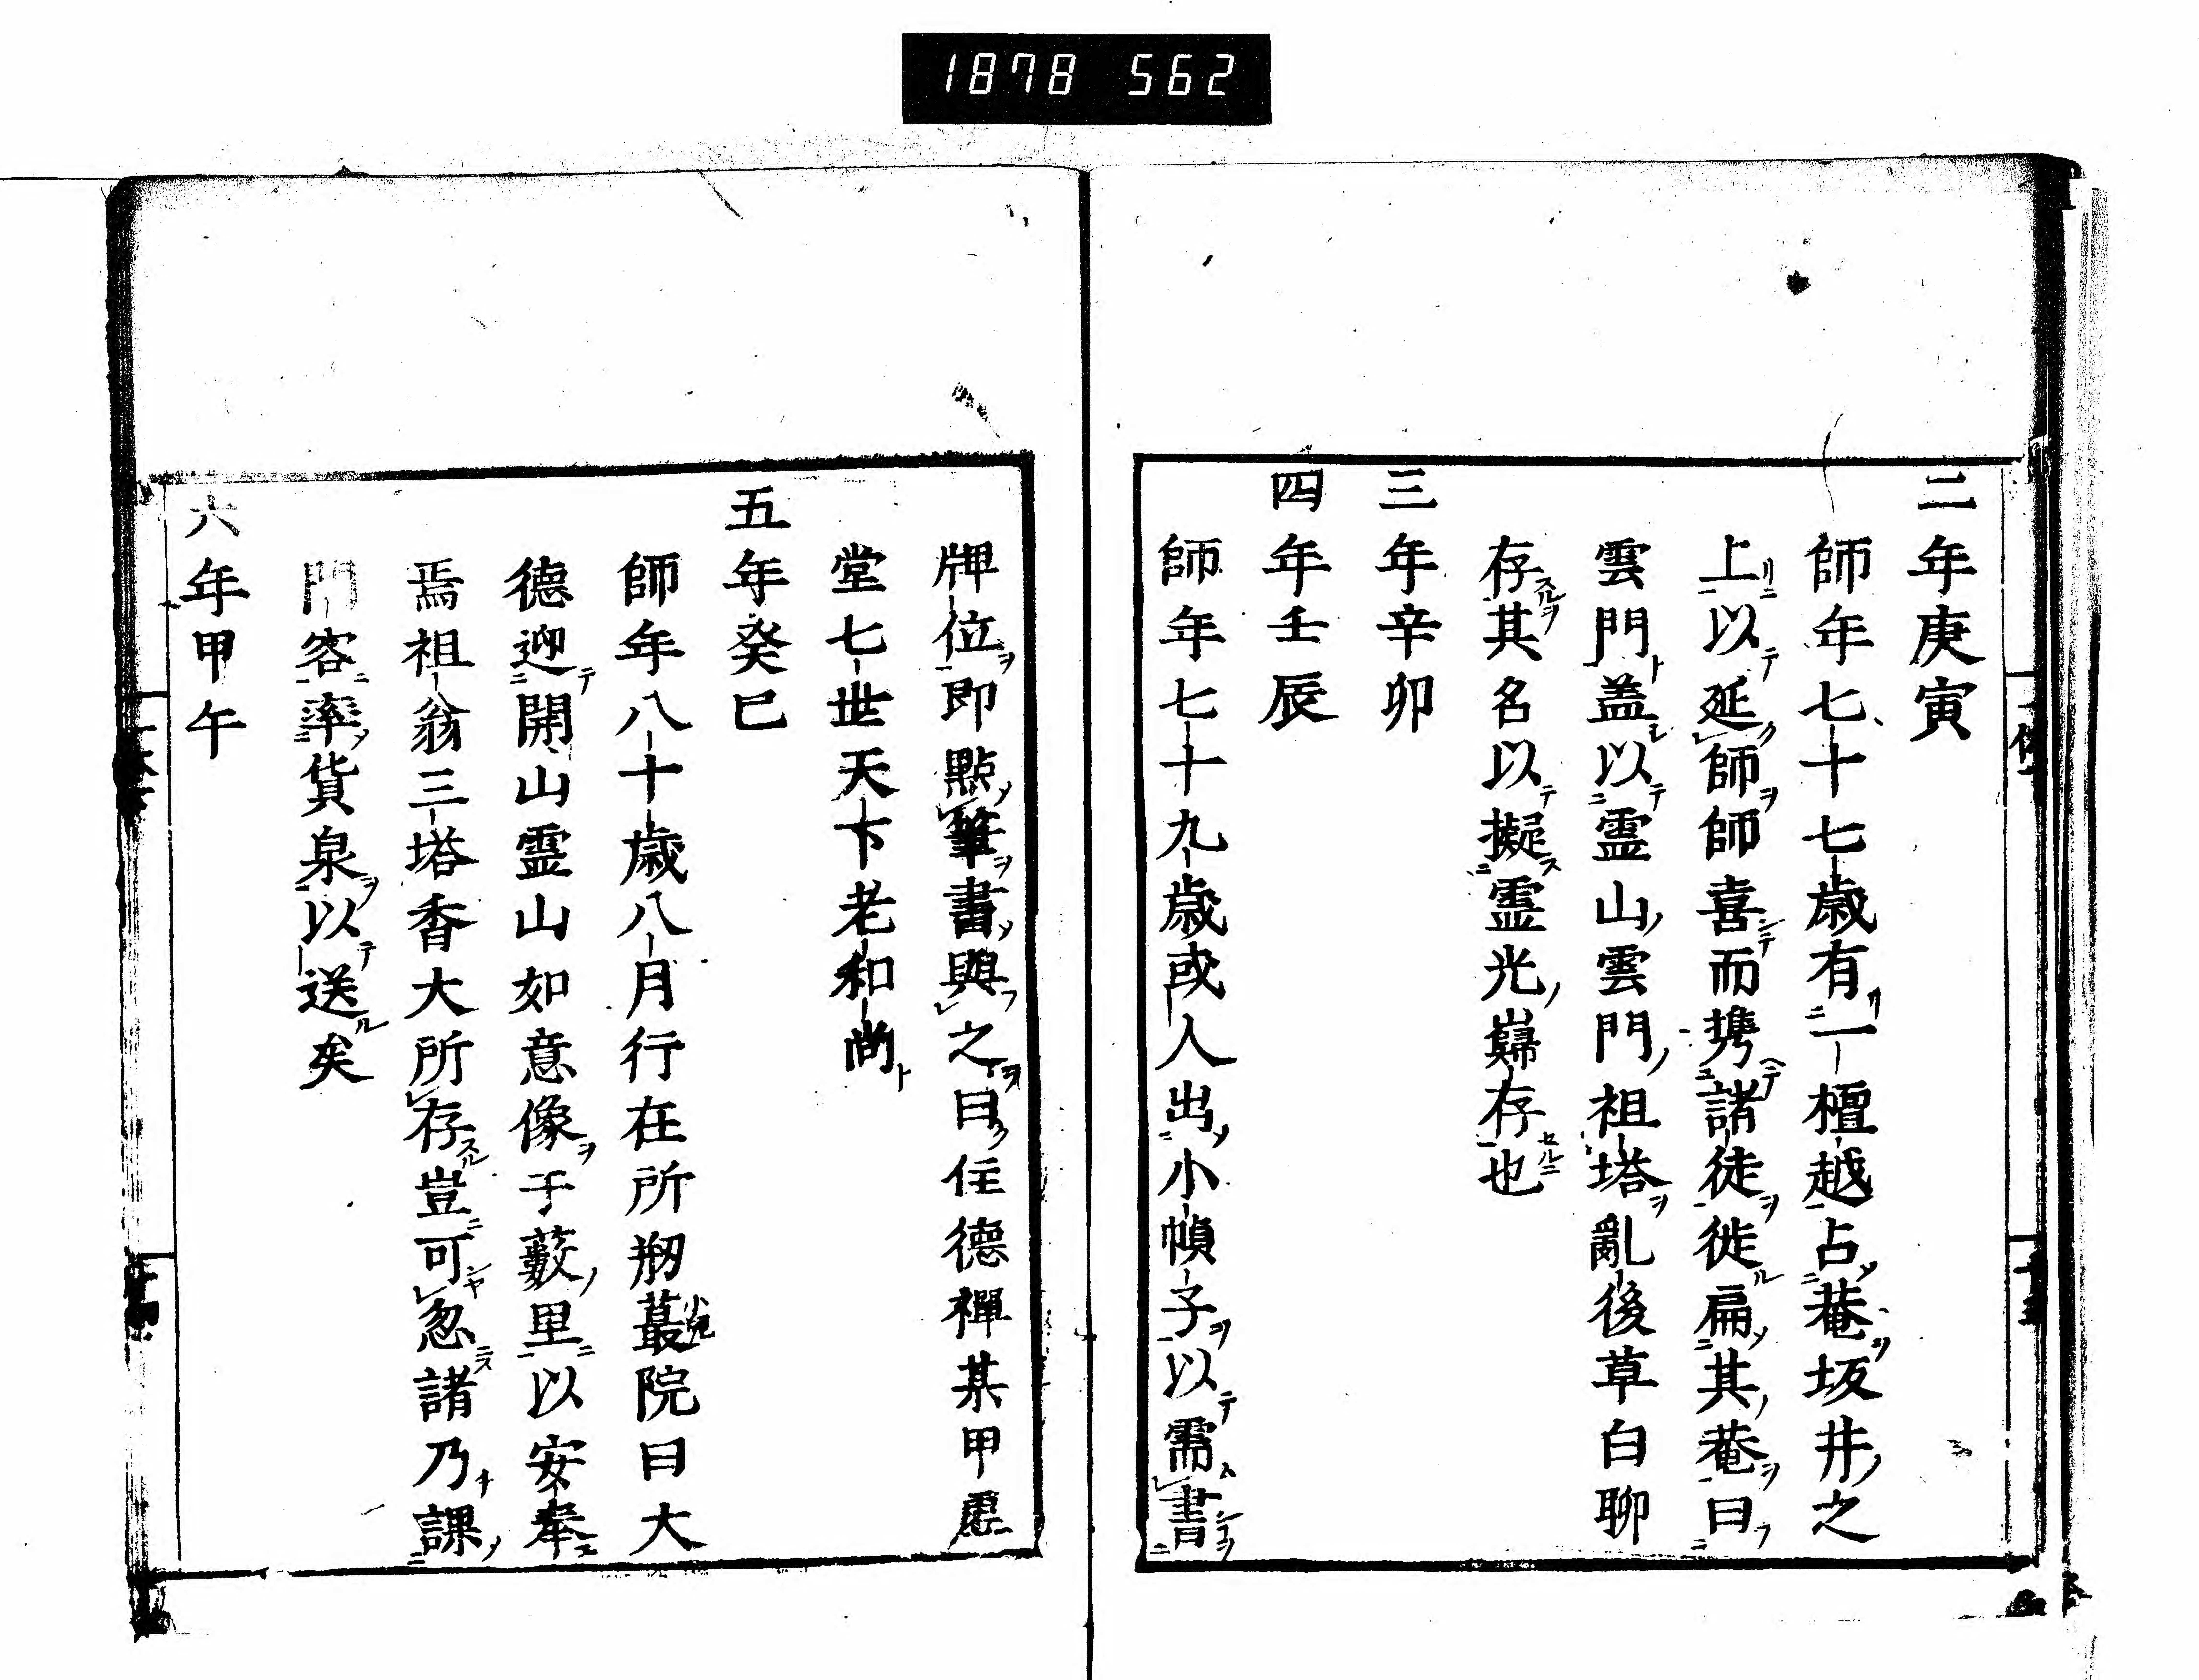 1878 562
二年庚寅
師年七十七歳有一檀越占菴坂井之
上以延師師喜而携諸徒徙扁其菴曰
雲門盖以霊山雲門祖塔亂後草白聊
存其名以擬霊光巋存也
三年辛卯
四年壬辰
師年七十九歳或人出小幀子以需書
牌位即點筆書與之曰住德禪某甲虚
堂七世天下老和尚
五年癸巳
師年八十歳八月行在所剏蕞院曰大
德迎開山霊山如意像于藪里以安奉
焉祖翁三塔香火所存豈可忽諸乃課
門客率貨泉以送矣
六年甲午